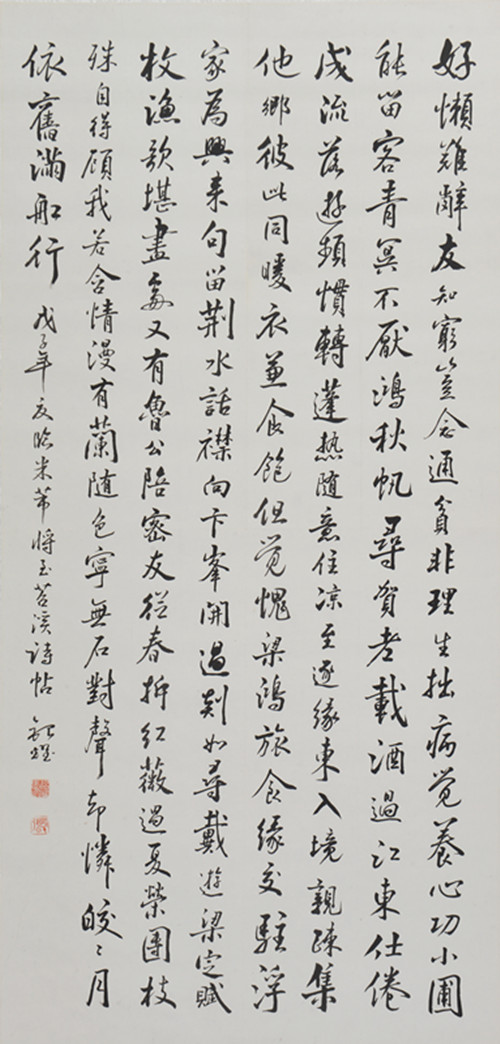 好懶難辭友知窮豈念通貧非理生拙病覺養心功小圃
能留客青冥不厭鴻秋帆尋賀老載酒過江東仕倦
成流落遊頻慣轉蓬熱隨意住涼至逐緣東入境親疎集
他鄉彼此同暖衣兼食飽但覺愧梁鴻旅食緣交駐浮
家為興來句留荊水話襟向卞峯開過剡如尋戴遊梁定賦
枚漁歌堪畫處又有魯公陪密友從春拆紅薇過夏榮團枝
殊自得顧我若含情漫有蘭隨色寧無石對聲却憐皎々月
依舊滿舡行 戊子年夏臨米芾將至苕溪詩帖